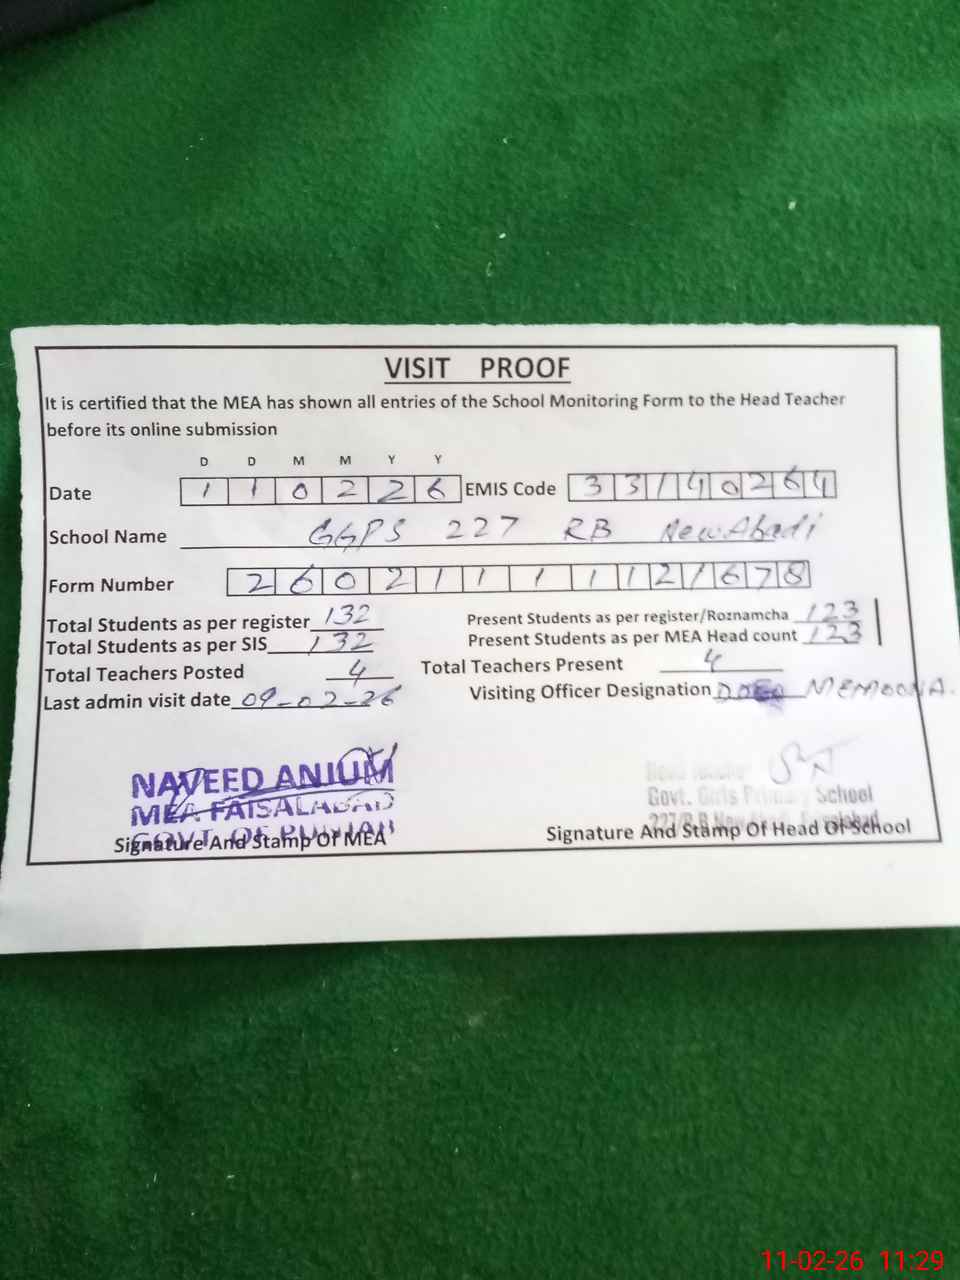 VISIT PROOF
It is certified that the MEA has shown all entries of the School Monitoring Form to the Head Teacher
before its online submission
D D M M Y Y
Date 1 1 0 2 2 6 EMIS Code 3 3 1 4 0 2 6 4
School Name GGPS 227 RB New Abadi
Form Number 2 6 0 2 1 1 1 1 1 2 1 6 7 8
Total Students as per register 132 Present Students as per register/Roznamcha 123
Total Students as per SIS 132 Present Students as per MEA Head count 123
Total Teachers Posted 4 Total Teachers Present 4
Last admin visit date 09-02-26 Visiting Officer Designation MEMOONA.
NAVEED ANJUM
MEA FAISALABAD
GOVT. OF PUNJAB
Signature And Stamp Of MEA
Head Teacher
Govt. Girls Primary School
227/R.B New Abadi, Faisalabad
Signature And Stamp Of Head Of School
11-02-26 11:29